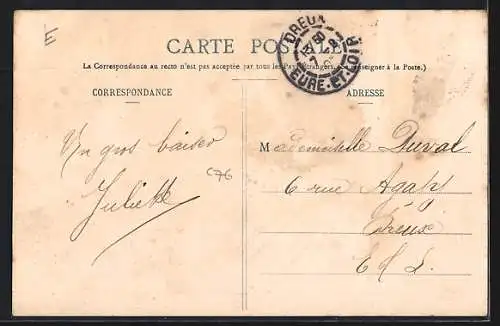 E
CARTE POSTALE
DREUX
EURE-ET-LOIR
(La Correspondance au recto n'est pas acceptée par tous les Pays Étrangers. Se renseigner à la Poste.)
CORRESPONDANCE
ADRESSE
Un gros baiser
Juliette
C76
Mademoiselle Duval
6 rue
Dreux
E & L